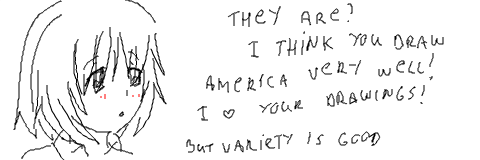 THEY ARE?
I THINK YOU DRAW
AMERICA VERY WELL!
I ♡ YOUR DRAWINGS!
BUT VARIETY IS GOOD